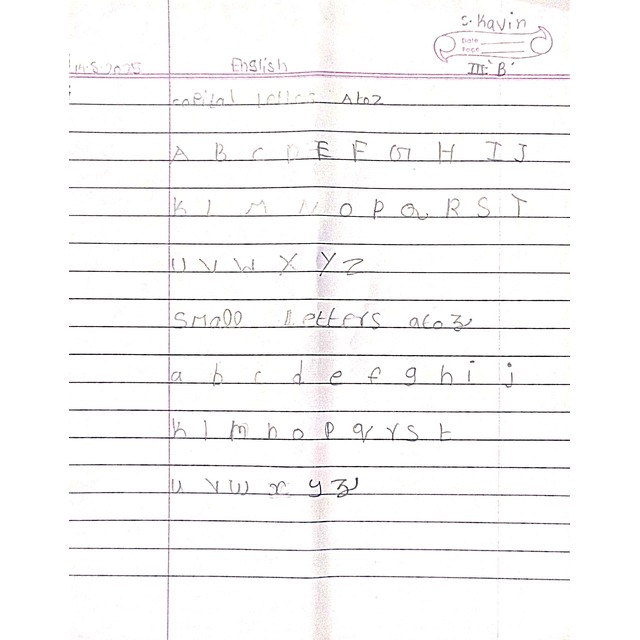 S. Kavin
Date
Page
14.5.2025 English III 'B'
Capital letters A to Z
A B C D E F G H I J
K L M N O P Q R S T
U V W X Y Z
Small letters a to z
a b c d e f g h i j
k l m n o p q r s t
u v w x y z